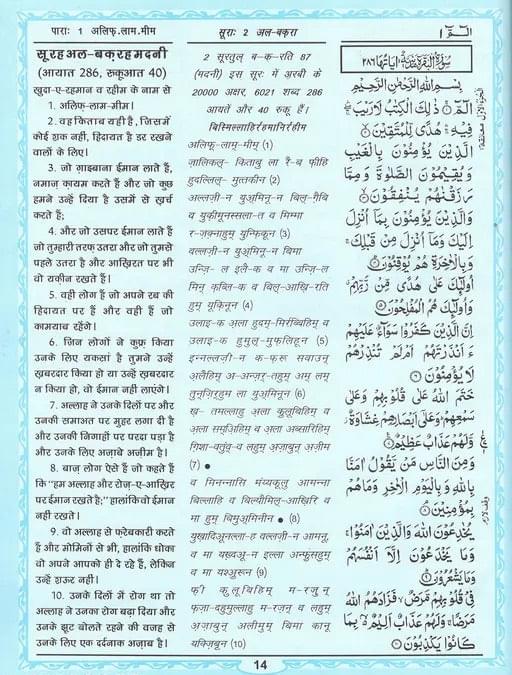 पाराः 1 अलिफ़.लाम.मीम
सूराः 2 अल-बक़रा
सूरह अल-बक़रह मदनी
(आयात 286, रुकूआत 40)
खुदा-ए-रहमान व रहीम के नाम से
1. अलिफ़-लाम-मीम।
2. वह किताब यही है, जिसमें
कोई शक नहीं, हिदायत है डर रखने
वालों के लिए।
3. जो ग़ाइबाना ईमान लाते हैं,
नमाज़ क़ायम करते हैं और जो कुछ
हमने उन्हें दिया है उसमें से ख़र्च
करते हैं;
4. और जो उसपर ईमान लाते हैं
जो तुम्हारी तरफ़ उतरा और जो तुमसे
पहले उतरा है और आख़िरत पर भी
वो यक़ीन रखते हैं।
5. वही लोग हैं जो अपने रब की
हिदायत पर हैं और वही हैं जो
कामयाब रहेंगे।
6. जिन लोगों ने कुफ़्र किया
उनके लिए यकसां है तुमने उन्हें
ख़बरदार किया हो या उन्हें ख़बरदार
न किया हो, वो ईमान नहीं लाएंगे।
7. अल्लाह ने उनके दिलों पर और
उनकी समाअत पर मुहर लगा दी है
और उनकी निगाहों पर परदा पड़ा है
और उनके लिए अज़ाबे अज़ीम है।
8. बाज़ लोग ऐसे हैं जो कहते हैं
कि “हम अल्लाह और रोज़-ए-आख़िर
पर ईमान रखते है;” हालांकि वो ईमान
नहीं रखते।
9. वो अल्लाह से फ़रेबकारी करते
हैं और मोमिनों से भी, हालांकि धोका
वो अपने आपको ही दे रहे हैं, लेकिन
उन्हें शऊर नहीं।
10. उनके दिलों में रोग था तो
अल्लाह ने उनका रोग बढ़ा दिया और
उनके झूट बोलते रहने की वजह से
उनके लिए एक दर्दनाक अज़ाब है।
2 सूरतुल् ब-क़-रति 87
(मदनी) इस सूरः में अ़रबी के
20000 अक्षर, 6021 शब्द 286
आयतें और 40 रुकू हैं।
बिस्मिल्लाहिर्रहमानिर्रहीम
अलिफ़्-लाम्-मीम् (1)
ज़ालिकल्- किताबु ला रै-ब फ़ीहि
हुदल्लिल्- मुत्तक़ीन (2)
अल्लज़ी-न युअ्मिनू-न बिल्-ग़ैबि
व युक़ीमूनस्सला-त व मिम्मा
र-ज़क़्नाहुम् युन्फ़िक़ून (3)
वल्लज़ी-न युअ्मिनू-न बिमा
उन्ज़ि-ल इलै-क व मा उन्ज़ि-ल
मिन् क़ब्लि-क व बिल्-आख़ि-रति
हुम् यूक़िनून (4)
उलाइ-क अ़ला हुदम्-मिर्रब्बिहिम् व
उलाइ-क हुमुल्-मुफ़्लिहून (5)
इन्नल्लज़ी-न क-फ़रू सवाउन्
अलैहिम् अ-अन्ज़र्-तहुम् अम् लम्
तुन्ज़िर्हुम ला युअ्मिनून (6)
ख़- तमल्लाहु अ़ला क़ुलूबिहिम् व
अ़ला सम्अिहिम् व अ़ला अब्सारिहिम्
ग़िशा-वतुंव्-व लहुम् अ़ज़ाबुन् अ़ज़ीम
(7) ●
व मिनन्नासि मंय्यक़ूलु आमन्ना
बिल्लाहि व बिल्यौमिल्-आख़िरि व
मा हुम् बिमुअ्मिनीन ● (8)
युख़ादिअूनल्ला-ह वल्लज़ी-न आमनू,
व मा यख़्दअू-न इल्ला अन्फ़ुसहुम्
व मा यश्अुरून (9)
फ़ी क़ुलूबिहिम् म-रज़ुन्
फ़ज़ा-दहुमुल्लाहु म-रज़न् व लहुम्
अ़ज़ाबुन् अलीमुम् बिमा कानू
यक्ज़िबून (10)
الٓمّٓ ١
سُوْرَةُ الْبَقَرَةِ مَدَنِيَّة اٰيَاتُهَا ٢٨٦
بِسْمِ اللّٰهِ الرَّحْمٰنِ الرَّحِيْمِ
الٓمّٓ ۝ ذٰلِكَ الْكِتٰبُ لَا رَيْبَ ۛ
فِيْهِ ۛ هُدًى لِّلْمُتَّقِيْنَ ۝
الَّذِيْنَ يُؤْمِنُوْنَ بِالْغَيْبِ
وَيُقِيْمُوْنَ الصَّلٰوةَ وَمِمَّا
رَزَقْنٰهُمْ يُنْفِقُوْنَ ۝
وَالَّذِيْنَ يُؤْمِنُوْنَ بِمَآ اُنْزِلَ
اِلَيْكَ وَمَآ اُنْزِلَ مِنْ قَبْلِكَ ۚ
وَبِالْاٰخِرَةِ هُمْ يُوْقِنُوْنَ ۝
اُولٰٓئِكَ عَلٰى هُدًى مِّنْ رَّبِّهِمْ ۗ
وَاُولٰٓئِكَ هُمُ الْمُفْلِحُوْنَ ۝
اِنَّ الَّذِيْنَ كَفَرُوْا سَوَآءٌ عَلَيْهِمْ
ءَاَنْذَرْتَهُمْ اَمْ لَمْ تُنْذِرْهُمْ
لَا يُؤْمِنُوْنَ ۝
خَتَمَ اللّٰهُ عَلٰى قُلُوْبِهِمْ وَعَلٰى
سَمْعِهِمْ ۗ وَعَلٰٓى اَبْصَارِهِمْ غِشَاوَةٌ
وَّلَهُمْ عَذَابٌ عَظِيْمٌ ۝
وَمِنَ النَّاسِ مَنْ يَّقُوْلُ اٰمَنَّا
بِاللّٰهِ وَبِالْيَوْمِ الْاٰخِرِ وَمَا هُمْ
بِمُؤْمِنِيْنَ ۝
يُخٰدِعُوْنَ اللّٰهَ وَالَّذِيْنَ اٰمَنُوْا ۚ
وَمَا يَخْدَعُوْنَ اِلَّآ اَنْفُسَهُمْ
وَمَا يَشْعُرُوْنَ ۝
فِيْ قُلُوْبِهِمْ مَّرَضٌ ۙ فَزَادَهُمُ اللّٰهُ
مَرَضًا ۚ وَلَهُمْ عَذَابٌ اَلِيْمٌ ۢ بِمَا
كَانُوْا يَكْذِبُوْنَ ۝
14